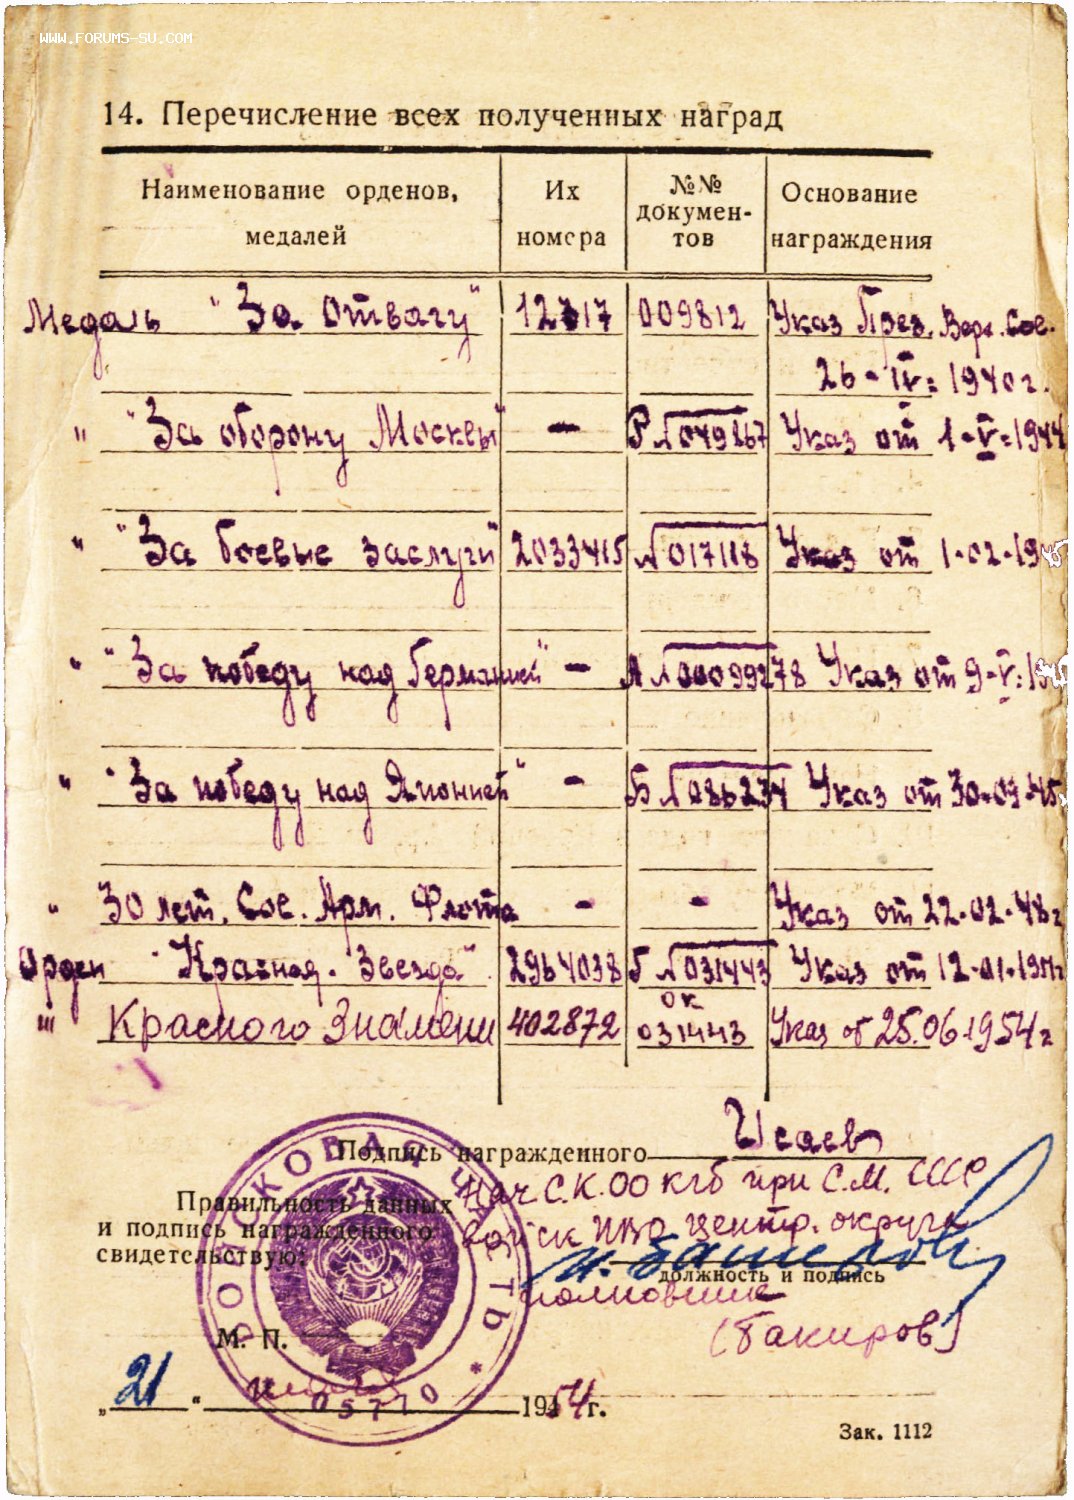 WWW.FORUMS-SU.COM
14. Перечисление всех полученных наград
Наименование орденов, медалей
Их номера
№№ докумен-тов
Основание награждения
Медаль "За отвагу" 12717 009812 Указ През. Верх. Сое.
26-IV=1940г.
" "За оборону Москвы" - Р№049267 Указ от 1-V=1944
" "За боевые заслуги" 2033415 №017118 Указ от 1-02-19
" "За победу над Германией" - А№00099278 Указ от 9-V=19
" "За победу над Японией" - Б№086234 Указ от 30-09-45
" 30 лет. Сое. Арм. Флота - - Указ от 22-02-48г
Орден "Красная Звезда" 2964038 Б№031443 Указ от 12-01-
ОК
"" Красного Знамени 402872 031443 Указ от 25.06.1954г
Подпись награжденного Исаев
Нач С.К. ОО КГБ при С.М. СССР
Правильность данных
и подпись награжденного
свидетельствую:
войск ПВО центр. округа
должность и подпись
полковник
(Бакиров)
М. П.
ВОЙСКОВАЯ ЧАСТЬ * 05770
„21" 1954г.
Зак. 1112